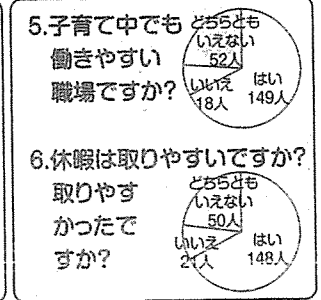 5.子育て中でも
働きやすい
職場ですか?
どちらとも
いえない
52人
いいえ
18人
はい
149人
6.休暇は取りやすいですか?
取りやす
かったで
すか?
どちらとも
いえない
50人
いいえ
21人
はい
148人